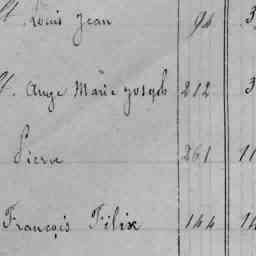 Louis Jean 94 3
Ange Marie Joseph 212 3
Pierre 261 11
François Félix 144 14